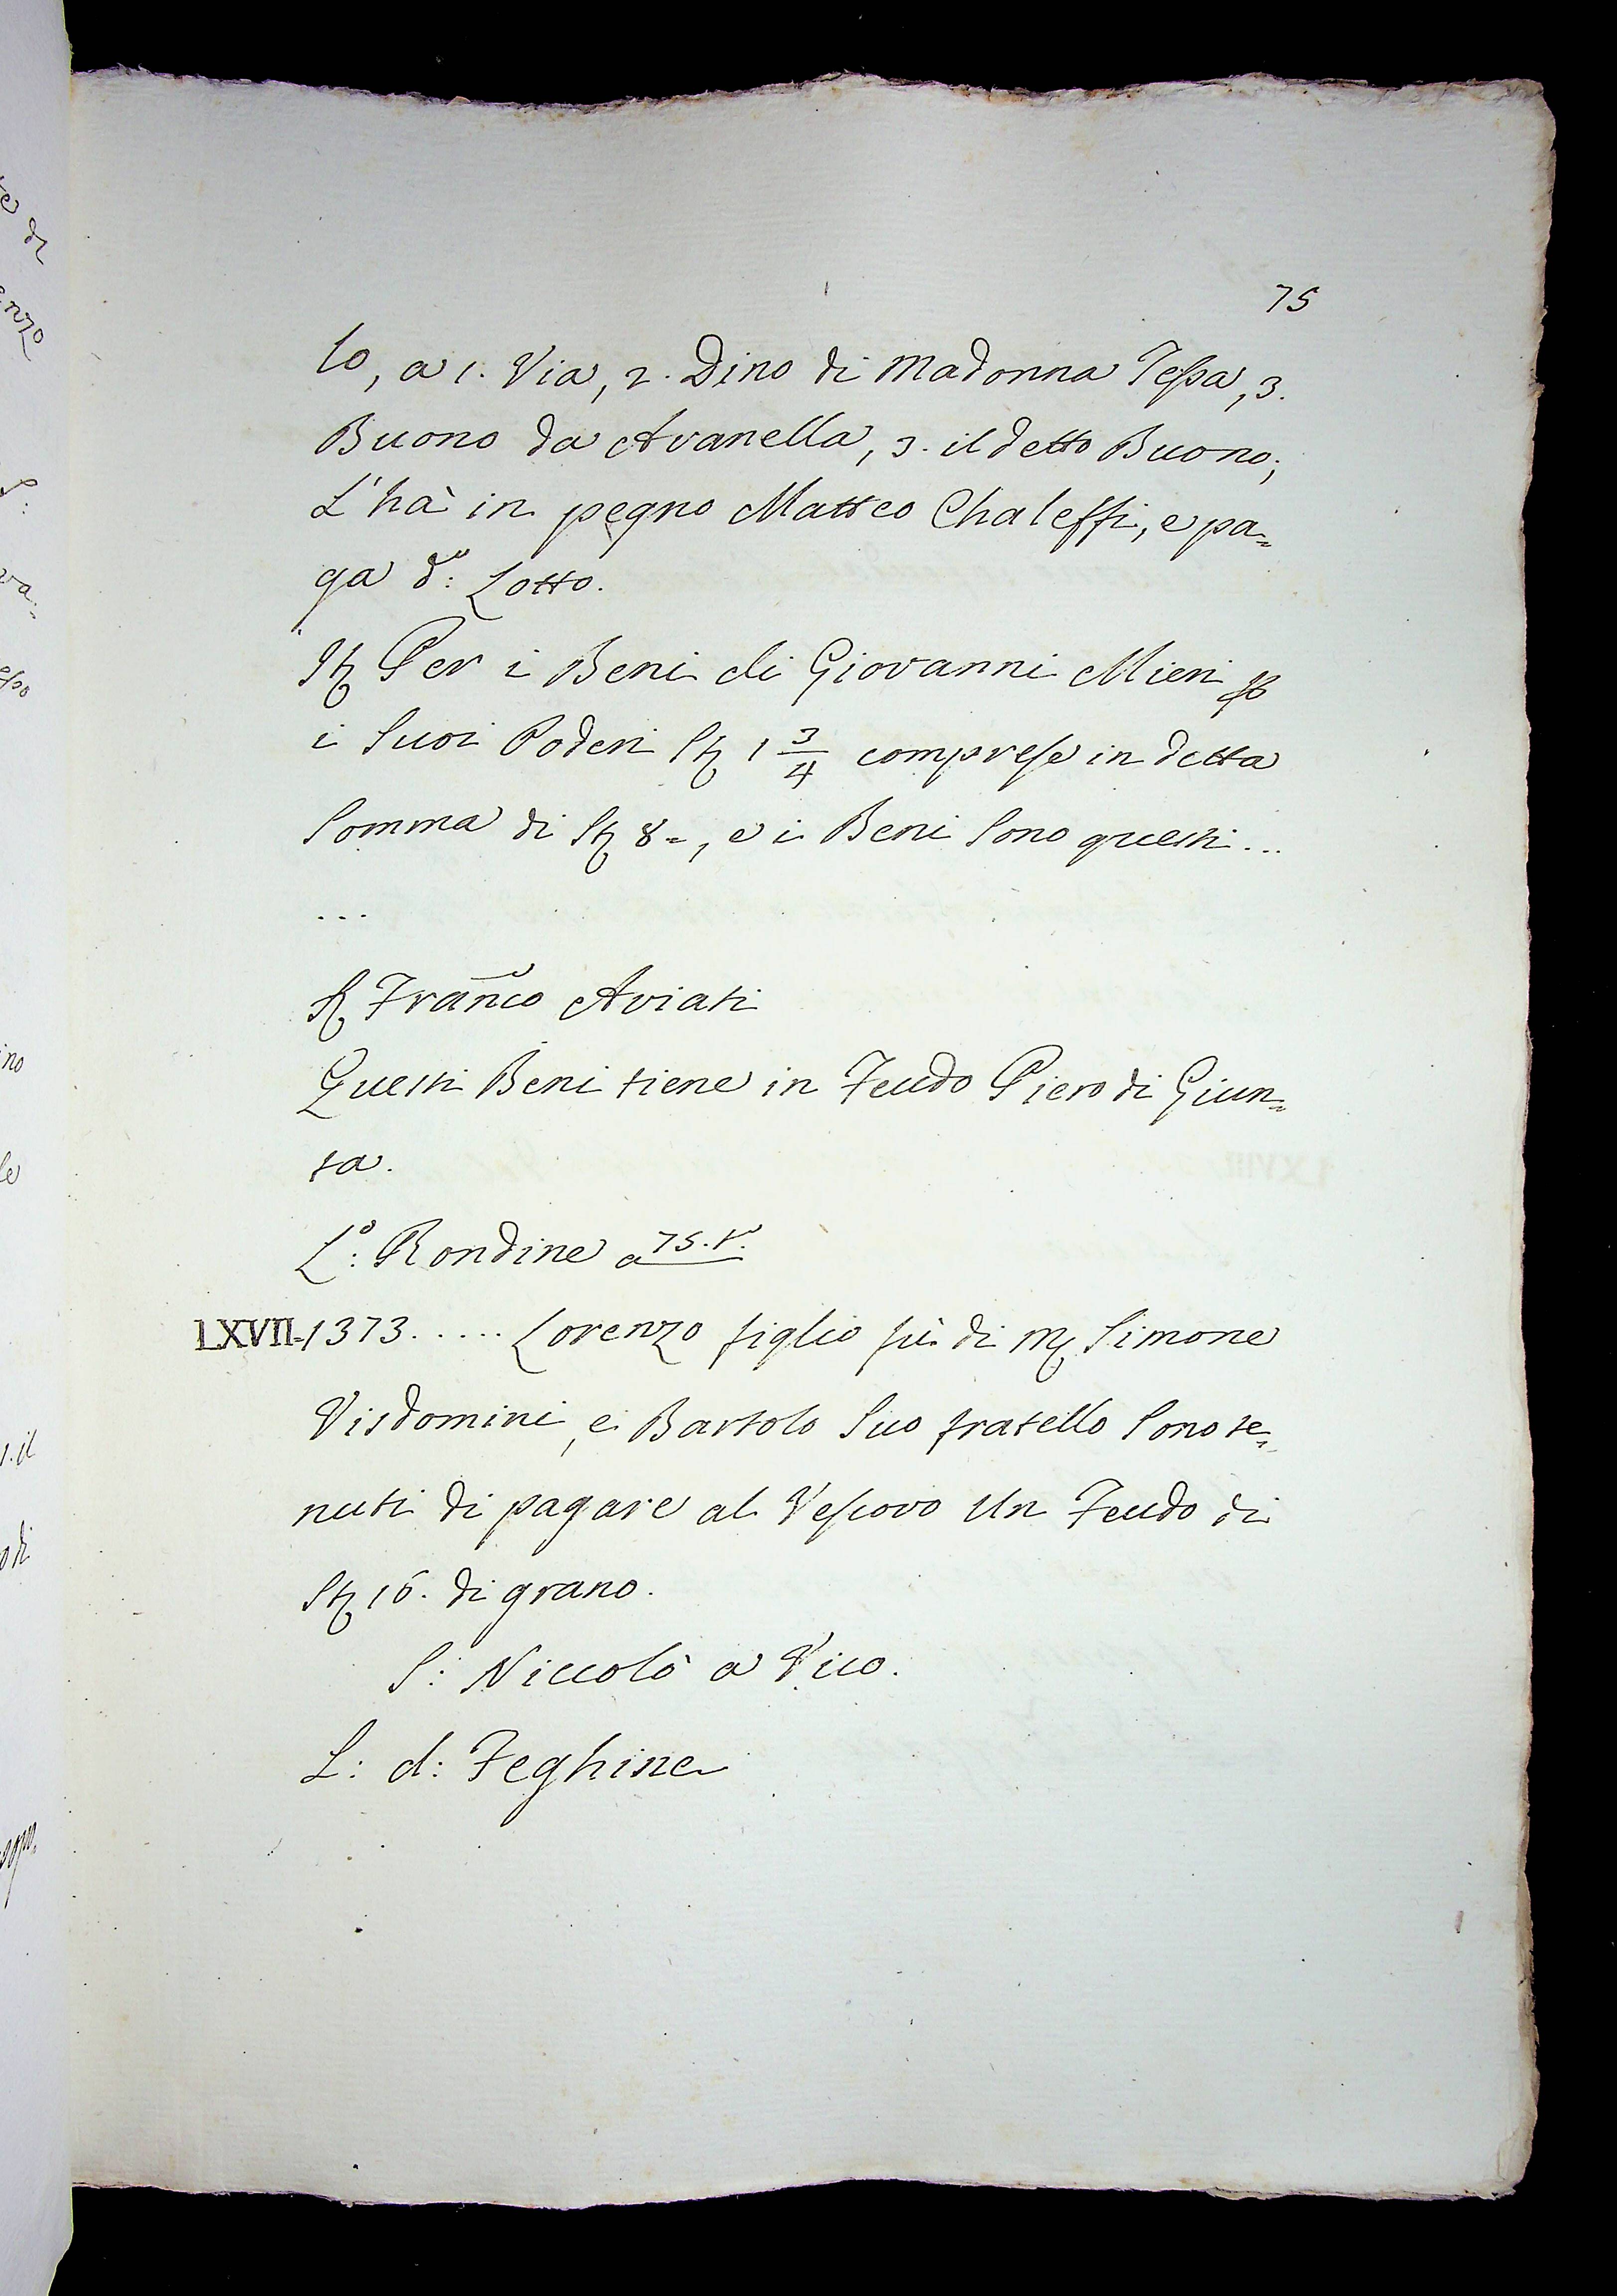 75
lo, a 1. Via, 2. Dino di Madonna Tessa, 3.
Buono da Avanella, 3. il detto Buono;
L'hà in pegno Matteo Chaleffi, e pa=
ga d.º Lotto.
Per i Beni di Giovanni Mieri
i Suoi Poderi St 1 3/4 comprese in detta
Somma di St 8=, e i Beni Sono questi...
...
S Fran͞co Aviati
Questi Beni tiene in Feudo Piero di Giun=
ta.
L.º: Rondine a 75. t.º
LXVII=1373..... Lorenzo figlio fù di M Simone
Visdomini, e Bartolo Suo fratello Sono te=
nuti di pagare al Vescovo Un Feudo di
St 16. di grano.
S: Niccolò a Vico.
L: d: Feghine